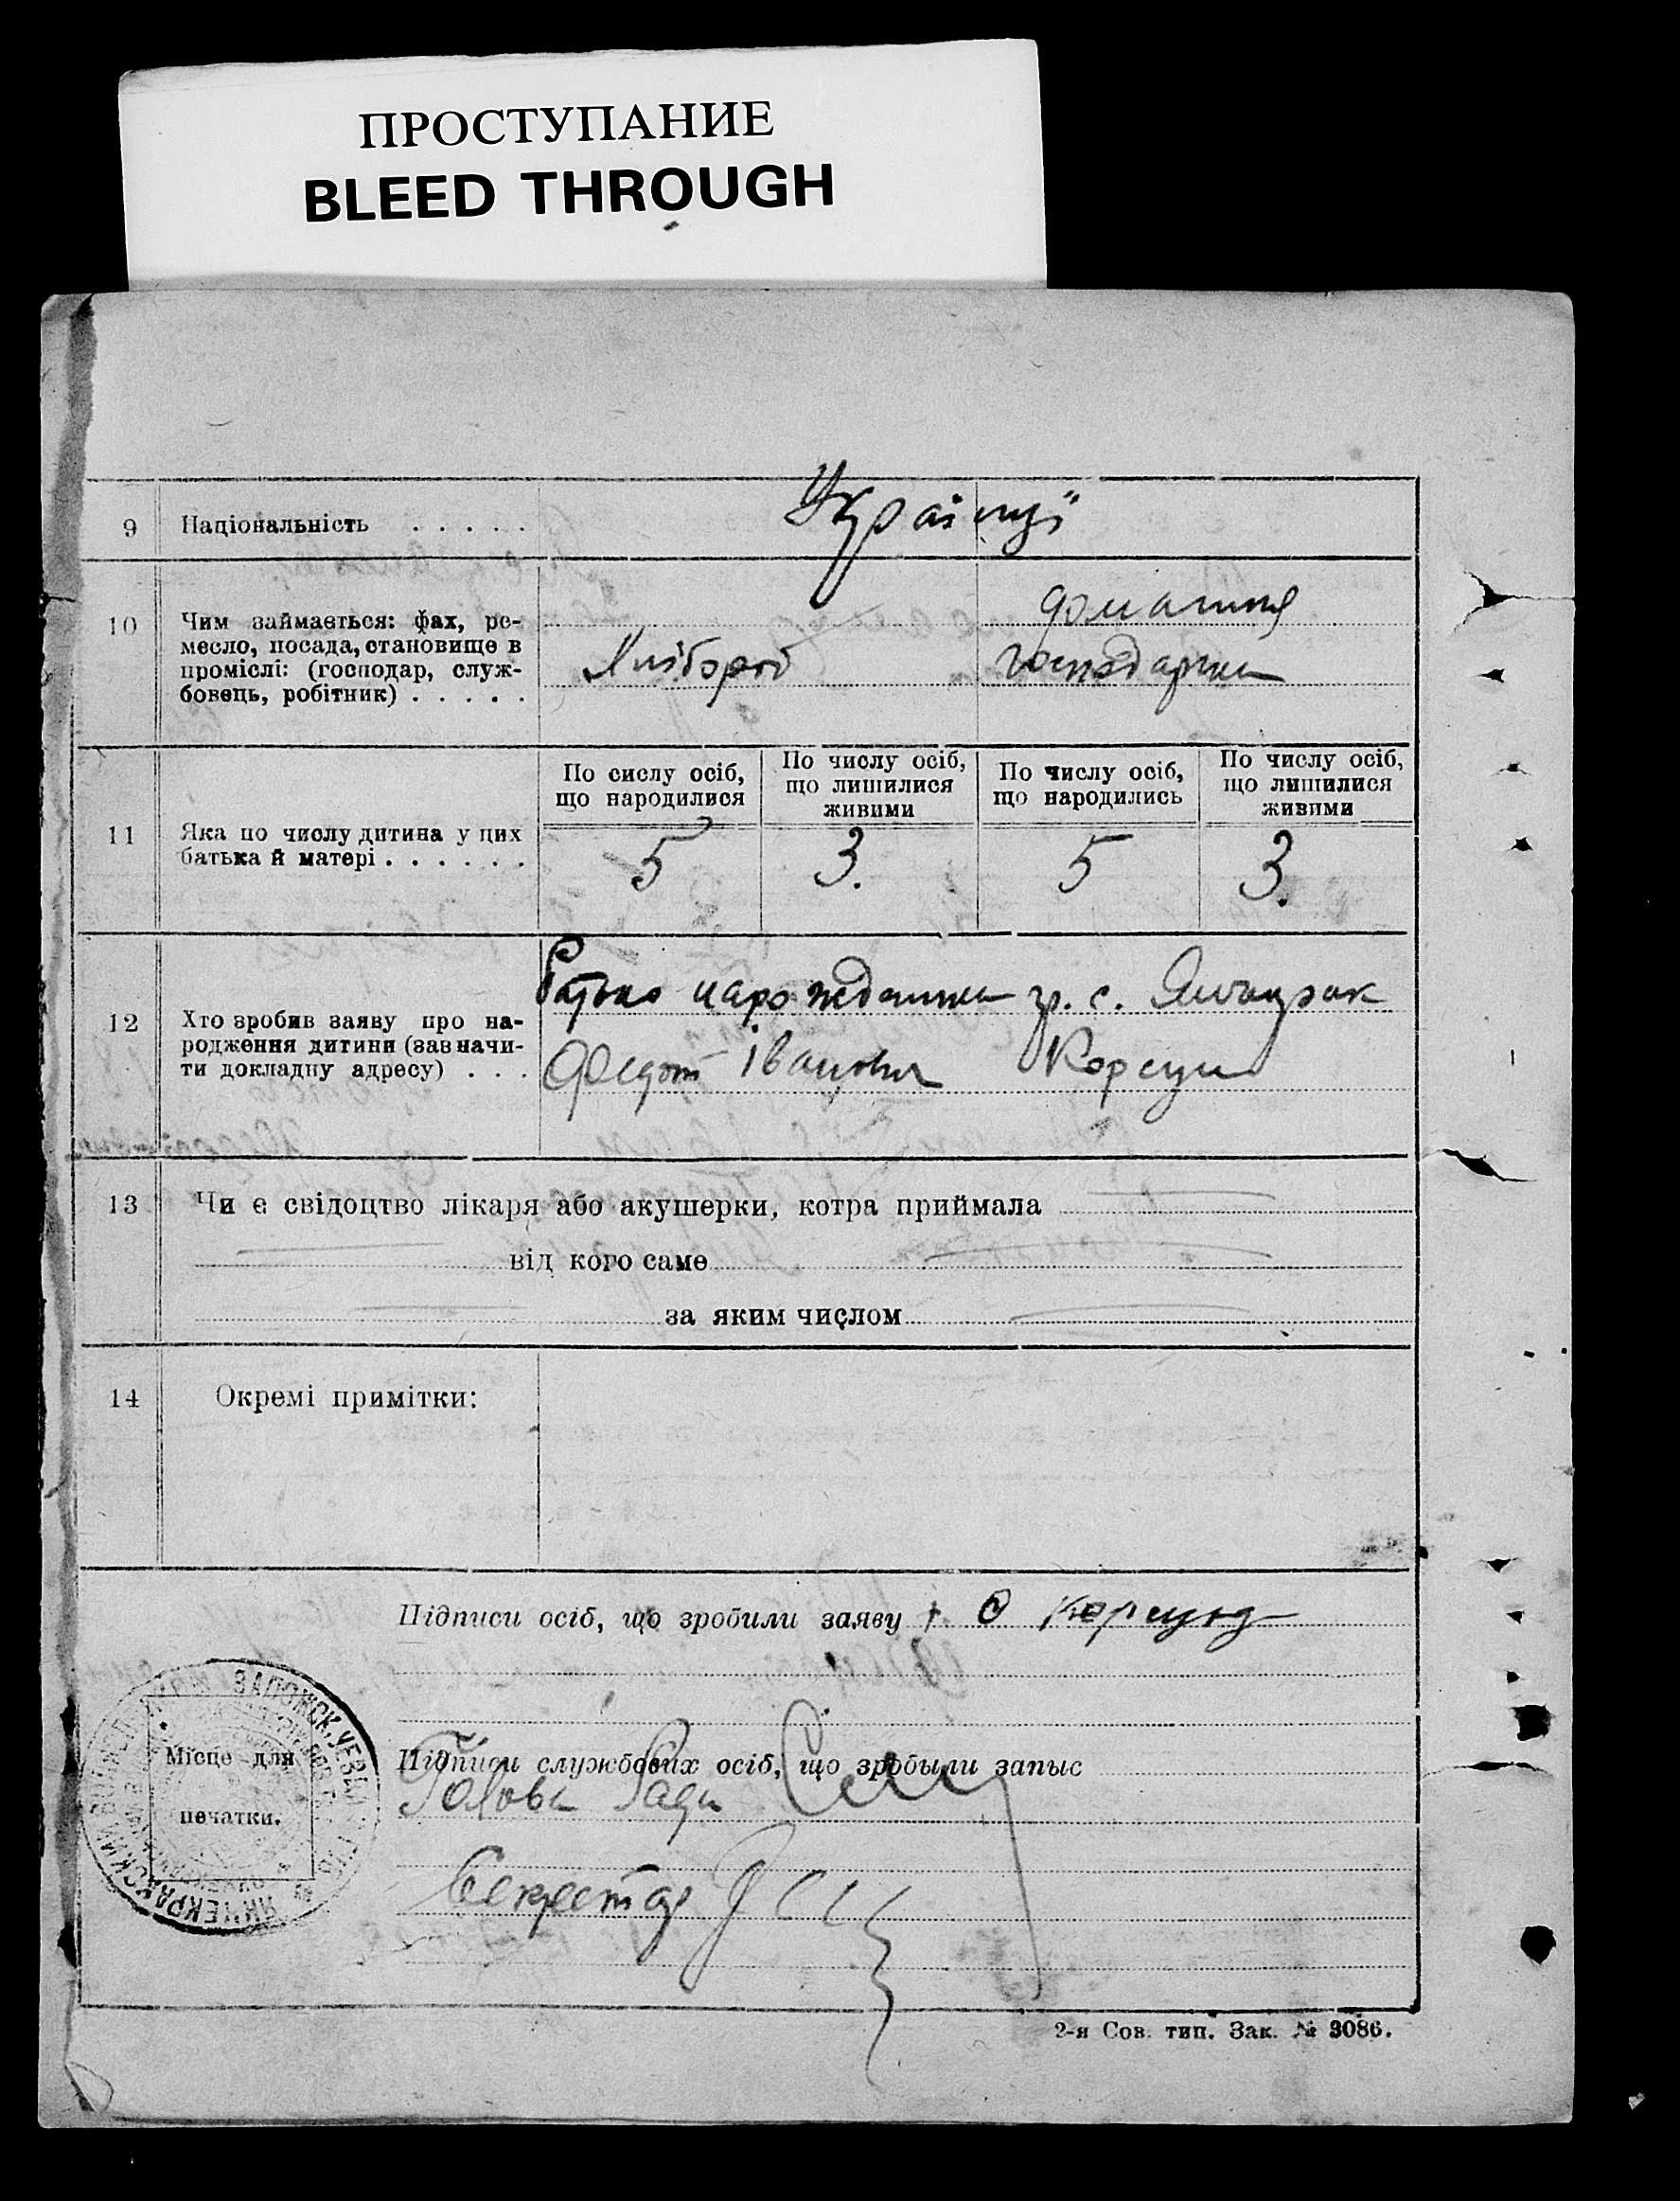 ПРОСТУПАНИЕ
BLEED THROUGH
9 Національність . . . . . Українці
10 Чим займається: фах, ре-
месло, посада, становище в
проміслі: (господар, служ-
бовець, робітник) . . . . .
домашня
Хлібороб господарка
11 Яка по числу дитина у цих
батька й матері . . . . . .
По сислу осіб,
що народилися
По числу осіб,
що лишилися
живими
По числу осіб,
що народились
По числу осіб,
що лишилися
живими
5 3. 5 3.
12 Хто зробив заяву про на-
родження дитини (зазначи-
ти докладну адресу) . . .
Батько нарожденика гр. с. Янчекрак
Федот Іванович Корсун
13 Чи є свідоцтво лікаря або акушерки, котра приймала
від кого саме
за яким числом
14 Окремі примітки:
Підписи осіб, що зробили заяву Корсун
Підписи службових осіб, що зробыли запыс
Голова Ради
Секретар
Місце для
печатки.
ЗАПОЖСК. УЕЗД
ЯНЧЕКРАКСКИЙ
2-я Сов. тип. Зак. № 3086.